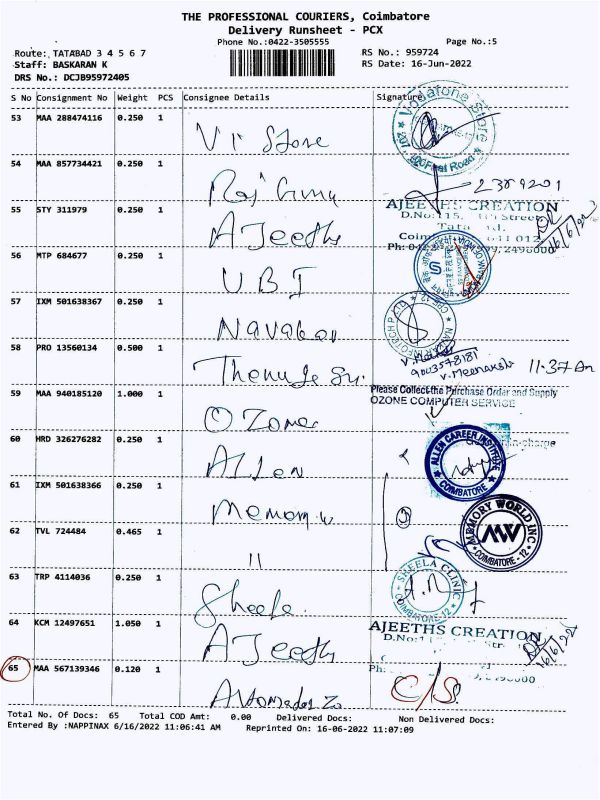 THE PROFESSIONAL COURIERS, Coimbatore
Delivery Runsheet - PCX
Phone No.:0422-3505555 Page No.:5
Route: TATABAD 3 4 5 6 7 RS No.: 959724
Staff: BASKARAN K RS Date: 16-Jun-2022
DRS No.: DCJB95972405
S No Consignment No Weight PCS Consignee Details Signature
53 MAA 288474116 0.250 1 Store Vodafone Store
54 MAA 857734421 0.250 1 2389201
55 STY 311979 0.250 1 AJeeths AJEETHS CREATION
D.No: 115, Street
16/6/22
56 MTP 684677 0.250 1 UBI
57 IXM 501638367 0.250 1
58 PRO 13560134 0.500 1 9003578181
11.37 Am
59 MAA 940185120 1.000 1 Ozone Please Collect the Purchase Order and Supply
OZONE COMPUTER SERVICE
60 HRD 326276282 0.250 1 Allen ALLEN CAREER INSTITUTE
COIMBATORE
61 IXM 501638366 0.250 1 MEMORY WORLD INC
MW
COIMBATORE - 12
62 TVL 724484 0.465 1 "
63 TRP 4114036 0.250 1 Sheela SHEELA CLINIC
COIMBATORE-12
64 KCM 12497651 1.050 1 AJeeths AJEETHS CREATION
16/6/22
65 MAA 567139346 0.120 1 C/S.
Total No. Of Docs: 65 Total COD Amt: 0.00 Delivered Docs: Non Delivered Docs:
Entered By :NAPPINAX 6/16/2022 11:06:41 AM Reprinted On: 16-06-2022 11:07:09